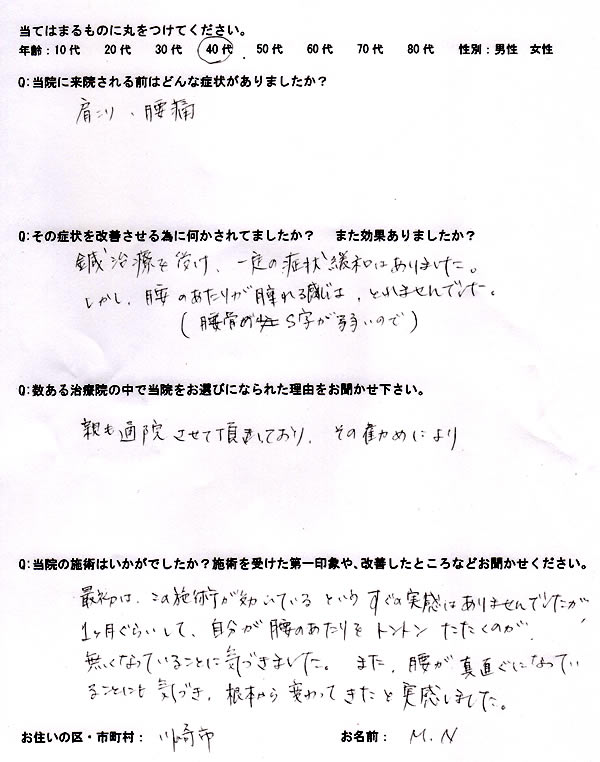 当てはまるものに丸をつけてください。
年齢：10代 20代 30代 40代 50代 60代 70代 80代 性別：男性 女性
Q:当院に来院される前はどんな症状がありましたか？
肩こり、腰痛
Q:その症状を改善させる為に何かされてましたか？ また効果ありましたか？
鍼治療を受け、一定の症状緩和はありました。
しかし、腰のあたりが腫れる感じは、とれませんでした。
（腰骨が S字が弱いので）
Q:数ある治療院の中で当院をお選びになられた理由をお聞かせ下さい。
親も通院させて頂きしており、その勧めにより
Q:当院の施術はいかがでしたか？施術を受けた第一印象や、改善したところなどお聞かせください。
最初は、この施術が効いているというすぐの実感はありませんでしたが、
1ヶ月ぐらいして、自分が腰のあたりをトントンたたくのが
無くなっていることに気づきました。また、腰が真直ぐになってい
ることにも気づき、根本から変わってきたと実感しました。
お住いの区・市町村： 川崎市 お名前： M.N